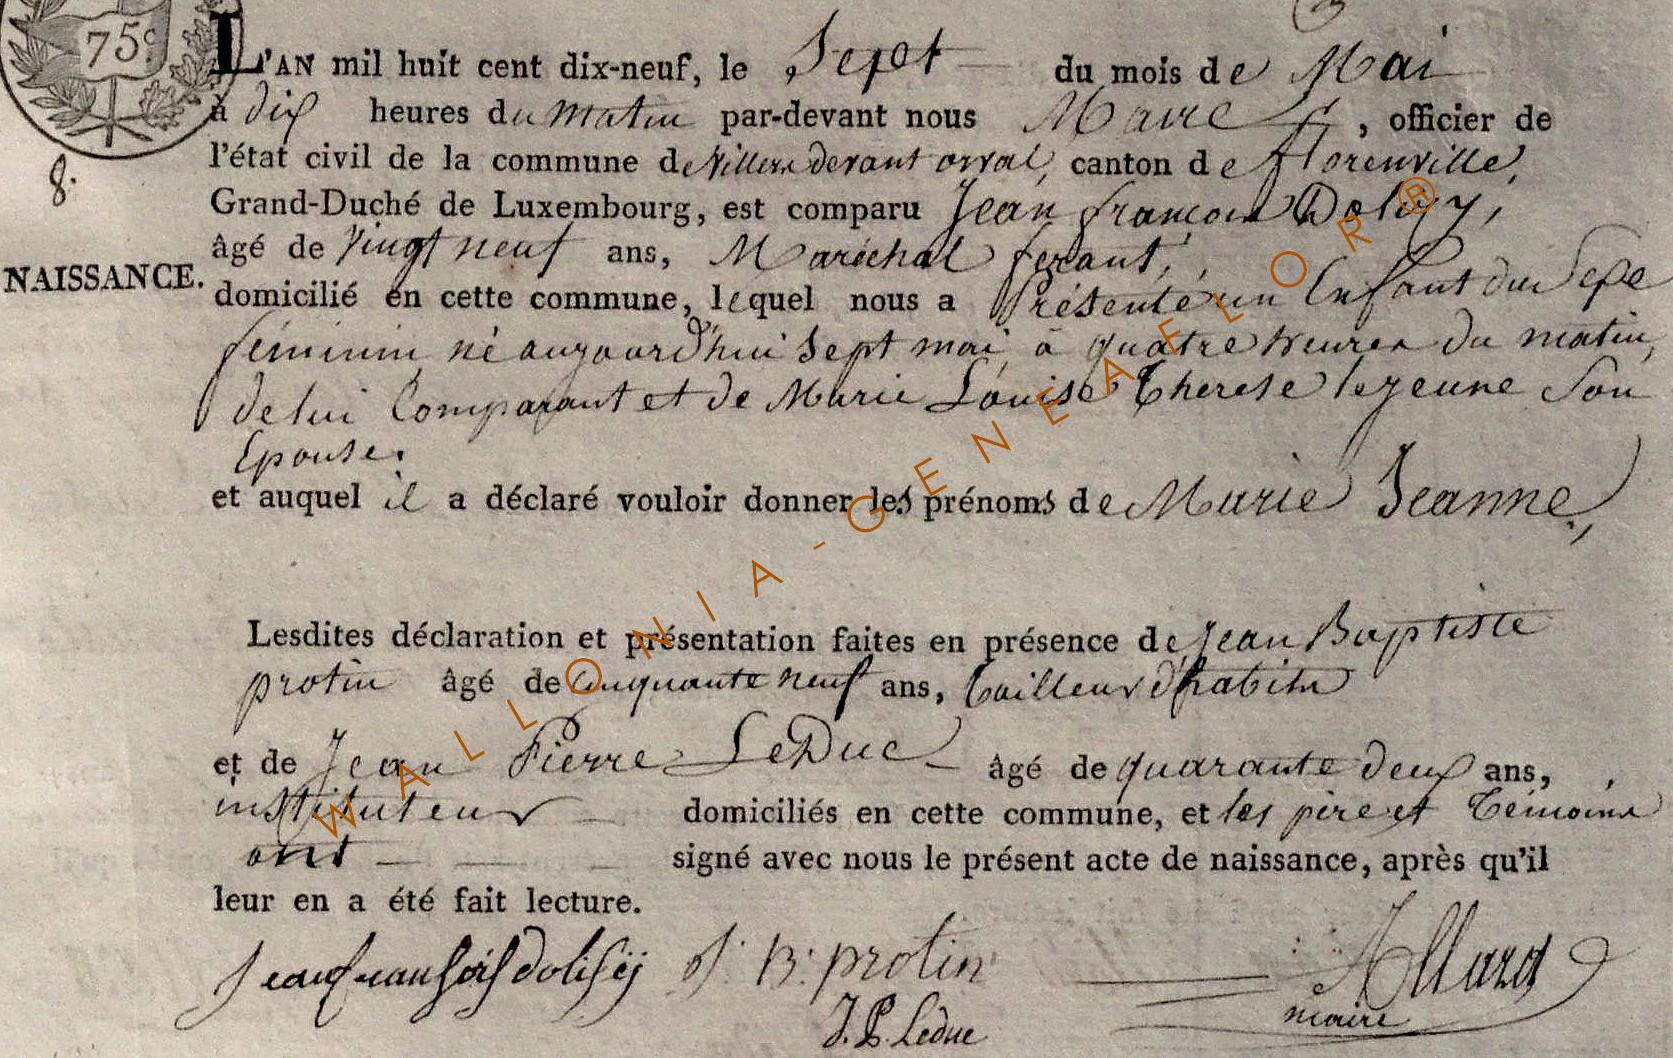 75c
8.
L'AN mil huit cent dix-neuf, le Sept du mois de Mai
à dix heures du matin par-devant nous Maire, officier de
l'état civil de la commune de Villers devant orval, canton de florenville,
Grand-Duché de Luxembourg, est comparu Jean françois Dolizy,
âgé de vingt neuf ans, Maréchal ferant,
NAISSANCE.
domicilié en cette commune, lequel nous a Présenté un Enfant du Sexe
féminin, né aujourd'hui Sept mai, à quatre heures du matin,
de lui Comparant et de Marie Louise Therese lejeune Son
Epouse.
et auquel il a déclaré vouloir donner les prénoms de Marie Jeanne,
Lesdites déclaration et présentation faites en présence de Jean Baptiste
protin âgé de Cinquante neuf ans, tailleur d'habits
et de Jean Pierre LeDuc âgé de quarante deux ans,
instituteur domiciliés en cette commune, et les père et Témoins
ont signé avec nous le présent acte de naissance, après qu'il
leur en a été fait lecture.
J. B. protin
J. P. Leduc
Allard
maire
WALLONIA-GENEAELOR®